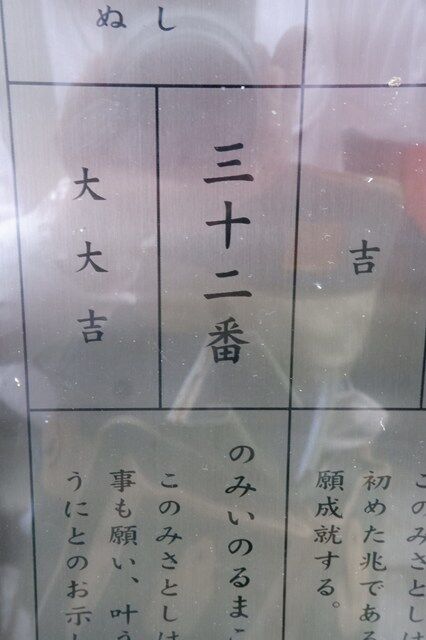 吉
このみさとしは
初めた兆である
願成就する。
三十二番
大大吉
のみいのるまこ
このみさとしは
事も願い、叶う
うにとのお示し
ぬし